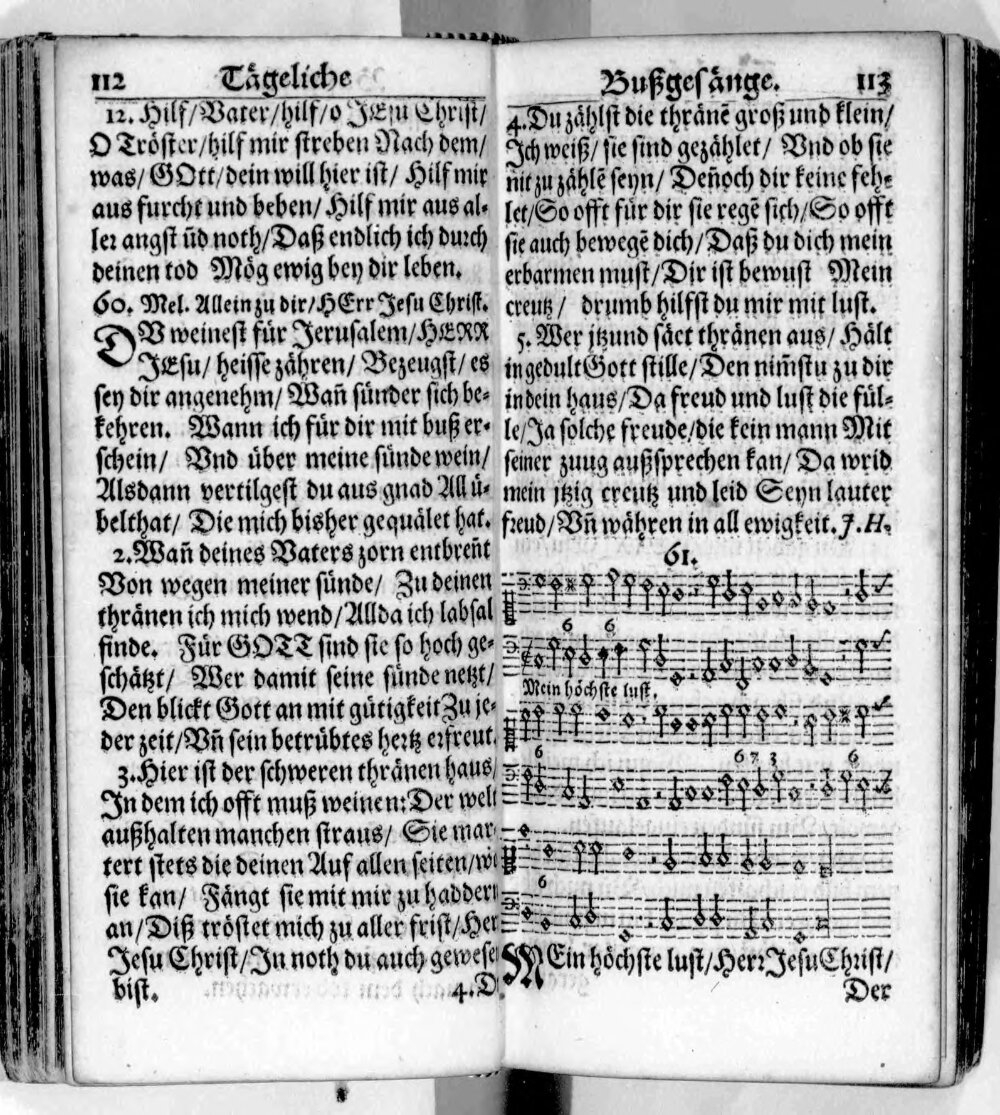 112 Tågeliche
12. Hilf/Vater/hilf/o JEsu Christ/
O Tröster/hilf mir streben Nach dem/
was/GOtt/dein will hier ist/ Hilf mir
aus furcht und beben/Hilf mir aus al-
ler angst uñd noth/Daß endlich ich durch
deinen tod Mög ewig bey dir leben.
60. Mel. Allein zu dir/HErr Jesu Christ.
DV weinest für Jerusalem/HERR
JEsu/ heisse zähren/ Bezeugst/ es
sey dir angenehm/ Wañ sünder sich be-
kehren. Wann ich für dir mit buß er-
schein/ Vnd über meine sünde wein/
Alsdann vertilgest du aus gnad All ü-
belthat/ Die mich bisher gequälet hat.
2. Wañ deines Vaters zorn entbreñt
Von wegen meiner sünde/ Zu deinen
thränen ich mich wend/Allda ich labsal
finde. Für GOTT sind sie so hoch ge-
schätzt/ Wer damit seine sünde netzt/
Den blickt Gott an mit gütigkeit Zu je-
der zeit/Vñ sein betrübtes hertz erfreut.
3. Hier ist der schweren thränen haus/
In dem ich offt muß weinen: Der welt
außhalten manchen straus/ Sie mar-
tert stets die deinen Auf allen seiten/wi
sie kan/ Fängt sie mit mir zu haddern
an/Diß tröstet mich zu aller frist/Her
Jesu Christ/In noth du auch gewese
bist. 4. D
Bußgesånge. 113
4. Du zählst die thränē groß und klein/
Ich weiß/ sie sind gezählet/ Vnd ob sie
nit zu zählē seyn/ Deñoch dir keine feh-
let/So offt für dir sie regē sich/So offt
sie auch bewegē dich/Daß du dich mein
erbarmen must/Dir ist bewust Mein
creutz/ drumb hilfst du mir mit lust.
5. Wer itzund säet thränen aus/ Hält
in gedult Gott stille/Den nim̃stu zu dir
in dein haus/Da freud und lust die fül-
le/Ja solche freude/die kein mann Mit
seiner zuug außsprechen kan/ Da wrid
mein itzig creutz und leid Seyn lauter
freud/Vñ währen in all ewigkeit. J. H.
61.
6 6
Mein höchste lust.
6 6 7 3 6
6
MEin höchste lust/Herr Jesu Christ/
Der